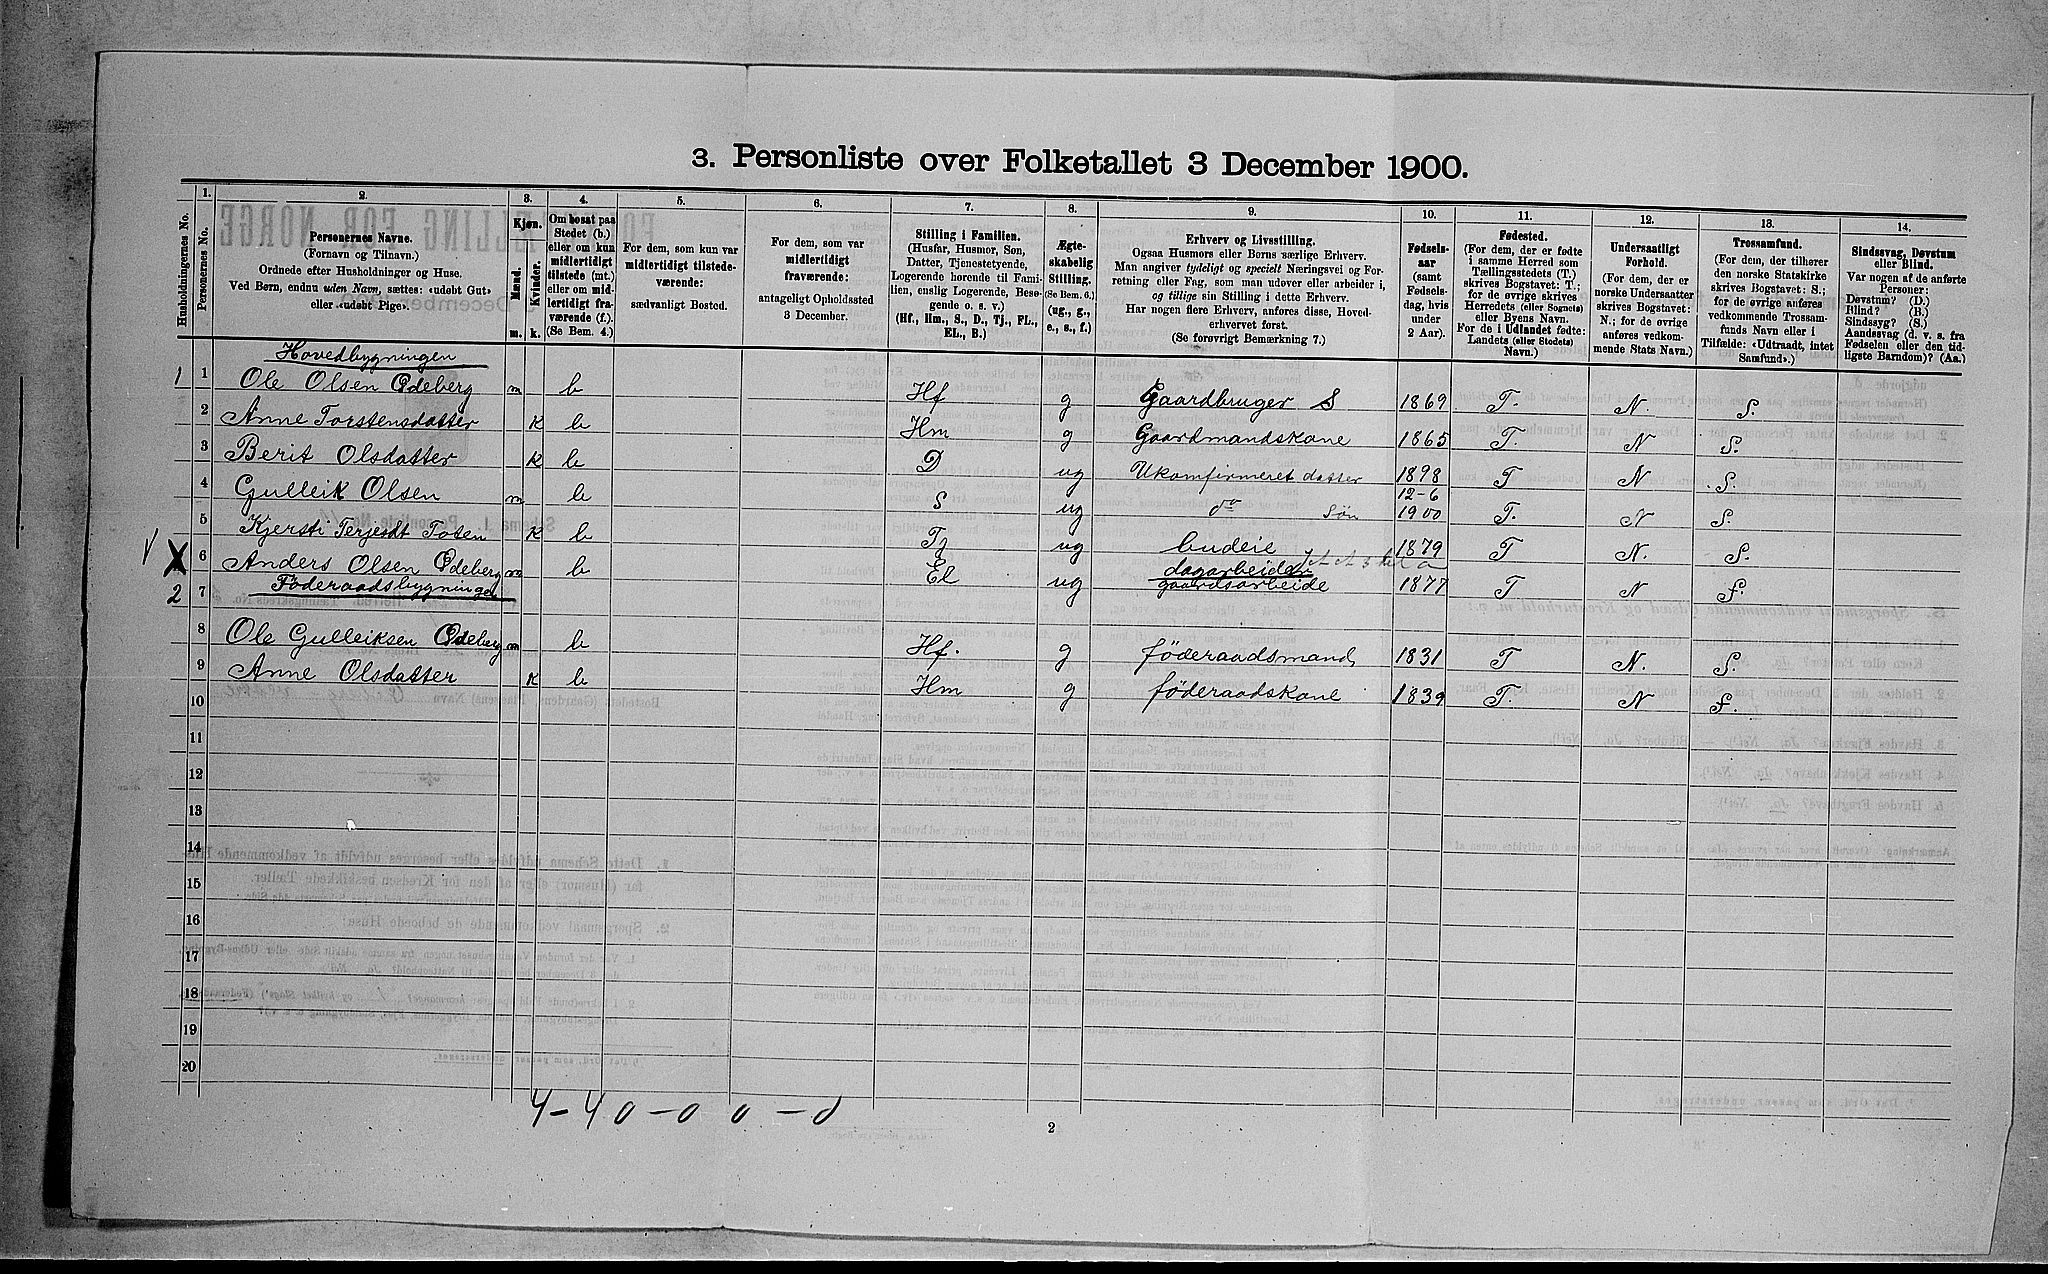 3. Personliste over Folketallet 3 December 1900.
Husholdningernes No.
1.
Personernes No.
2.
Personernes Navne.
(Fornavn og Tilnavn.)
Ordnede efter Husholdninger og Huse.
Ved Børn, endnu uden Navn, sættes: «udøbt Gut»
eller «udøbt Pige».
3.
Kjøn.
Mænd.
Kvinder.
m.
k.
4.
Om bosat paa
Stedet (b.)
eller om kun
midlertidigt
tilstede (mt.)
eller om mid-
lertidigt fra-
værende (f.).
(Se Bem. 4.)
5.
For dem, som kun var
midlertidigt tilstede-
værende:
sædvanligt Bosted.
6.
For dem, som var
midlertidigt
fraværende:
antageligt Opholdssted
3 December.
7.
Stilling i Familien.
(Husfar, Husmor, Søn,
Datter, Tjenestetyende,
Logerende hørende til Fami-
lien, enslig Logerende, Besø-
gende o. s. v.)
(Hf., Hm., S., D., Tj., FL.,
EL., B.)
8.
Ægte-
skabelig
Stilling.
(Se Bem. 6.)
(ug., g.,
e., s., f.)
9.
Erhverv og Livsstilling.
Ogsaa Husmors eller Børns særlige Erhverv.
Man angiver tydeligt og specielt Næringsvei og For-
retning eller Fag, som man udøver eller arbeider i,
og tillige sin Stilling i dette Erhverv.
Har nogen flere Erhverv, anføres disse, Hoved-
erhvervet først.
(Se forøvrigt Bemærkning 7.)
10.
Fødsels-
aar
(samt
Fødsels-
dag, hvis
under
2 Aar).
11.
Fødested.
(For dem, der er fødte
i samme Herred som
Tællingsstedets (T.)
skrives Bogstavet: T.;
for de øvrige skrives
Herredets (eller Sognets)
eller Byens Navn.
For de i Udlandet fødte:
Landets (eller Stedets)
Navn.)
12.
Undersaatligt
Forhold.
(For dem, der er
norske Undersaatter
skrives Bogstavet:
N.; for de øvrige
anføres vedkom-
mende Stats Navn.)
13.
Trossamfund.
(For dem, der tilhører
den norske Statskirke
skrives Bogstavet: S.;
for de øvrige anføres
vedkommende Trossam-
funds Navn eller i
Tilfælde: «Udtraadt, intet
Samfund».)
14.
Sindssvag, Døvstum
eller Blind.
Var nogen af de anførte
Personer:
Døvstum? (D.)
Blind? (B.)
Sindssyg? (S.)
Aandssvag (d. v. s. fra
Fødselen eller den tid-
ligste Barndom)? (Aa.)
Hovedbygningen
1 1 Ole Olsen Ødeberg m b Hf g Gaardbruger S 1869 T. N. S.
2 Anne Torstensdatter k b Hm g Gaardmandskone 1865 T. N S.
3 Berit Olsdatter k b D ug Ukomfirmeret datter 1898 T N S.
4 Gulleik Olsen m b S ug do Søn 12-6 1900 T. N S.
5 Kjersti Terjesdt Toten k b Tj ug budeie 1879 T N. S.
6 Anders Olsen Ødeberg m b El ug dagarbeider gaardsarbeide 1877 T N S.
2 7 Føderaadsbygningen
8 Ole Gulleiksen Ødeberg m b Hf. g føderaadsmand 1831 T N. S.
9 Anne Olsdatter k b Hm g føderaadskone 1839 T. N S.
10
11
12
13
14
15
16
17
18
19
20
4-4 0-0 0-0
2